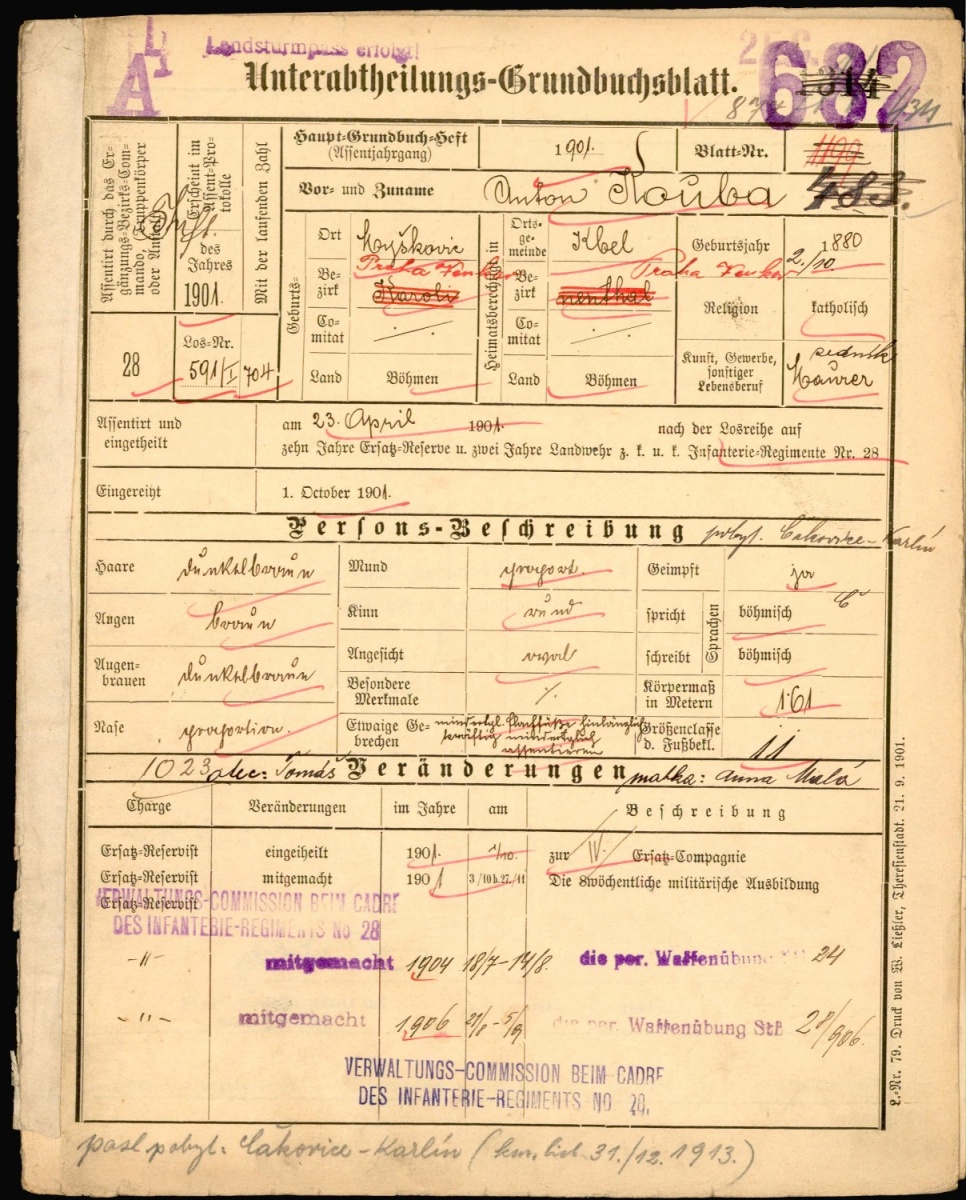 Landsturmpass erfolgt!
Unterabtheilungs-Grundbuchsblatt.
314
632
Assentirt durch das Ergänzungs-Bezirks-Commando, Truppenkörper oder Anstalt
28
Erscheint im Assent-Protokolle
des Jahres
1901.
Los-Nr.
591/I
Mit der laufenden Zahl
704
Haupt-Grundbuch-Heft
(Assentjahrgang)
1901.
Blatt-Nr.
1199
483.
Vor- und Zuname
Anton Kouba
Geburts-
Ort
Myškovic
Bezirk
Praha Venkov
Karoli
Comitat
Land
Böhmen
Heimatsberechtigt in
Ortsgemeinde
Kbel
Bezirk
Praha Venkov
nenthal
Comitat
Land
Böhmen
Geburtsjahr
2./10 1880
Religion
katholisch
Kunst, Gewerbe, sonstiger Lebensberuf
zedník
Maurer
Assentirt und eingetheilt
am 23. April 1901. nach der Losreihe auf
zehn Jahre Ersatz-Reserve u. zwei Jahre Landwehr z. k. u. k. Infanterie-Regimente Nr. 28
Eingereiht
1. October 1901.
Persons-Beschreibung pobyt. Čakovice-Karlín
Haare dunkelbraun
Mund proport.
Geimpft ja
Augen braun
Kinn rund
spricht
Sprachen
böhmisch
Angesicht oval
schreibt
böhmisch
Augenbrauen dunkelbraun
Besondere Merkmale ./.
Körpermaß in Metern 1·61
Nase proportion.
Etwaige Gebrechen mindertgl. Plachfüße hinlänglich
kräftig mindertauglich
assentieren
Größenclasse d. Fußbekl. 11
1023 otec: Tomáš Veränderungen matka: Anna Malá
Charge Veränderungen im Jahre am Beschreibung
Ersatz-Reservist eingetheilt 1901. 1/10. zur IV. Ersatz-Compagnie
Ersatz-Reservist mitgemacht 1901 3/10 b. 27./11 Die 8wöchentliche militärische Ausbildung
Ersatz-Reservist
VERWALTUNGS-COMMISSION BEIM CADRE
DES INFANTERIE-REGIMENTS No 28
-"- mitgemacht 1904 18/7-14/8. die per. Waffenübung 24
-"- mitgemacht 1906 die per. Waffenübung StB 28/906.
VERWALTUNGS-COMMISSION BEIM CADRE
DES INFANTERIE-REGIMENTS No 28.
posl. pobyt: Čakovice-Karlín (31./12. 1913.)
L.-Nr. 79. Druck von W. Ließler, Theresienstadt. 21. 9. 1901.